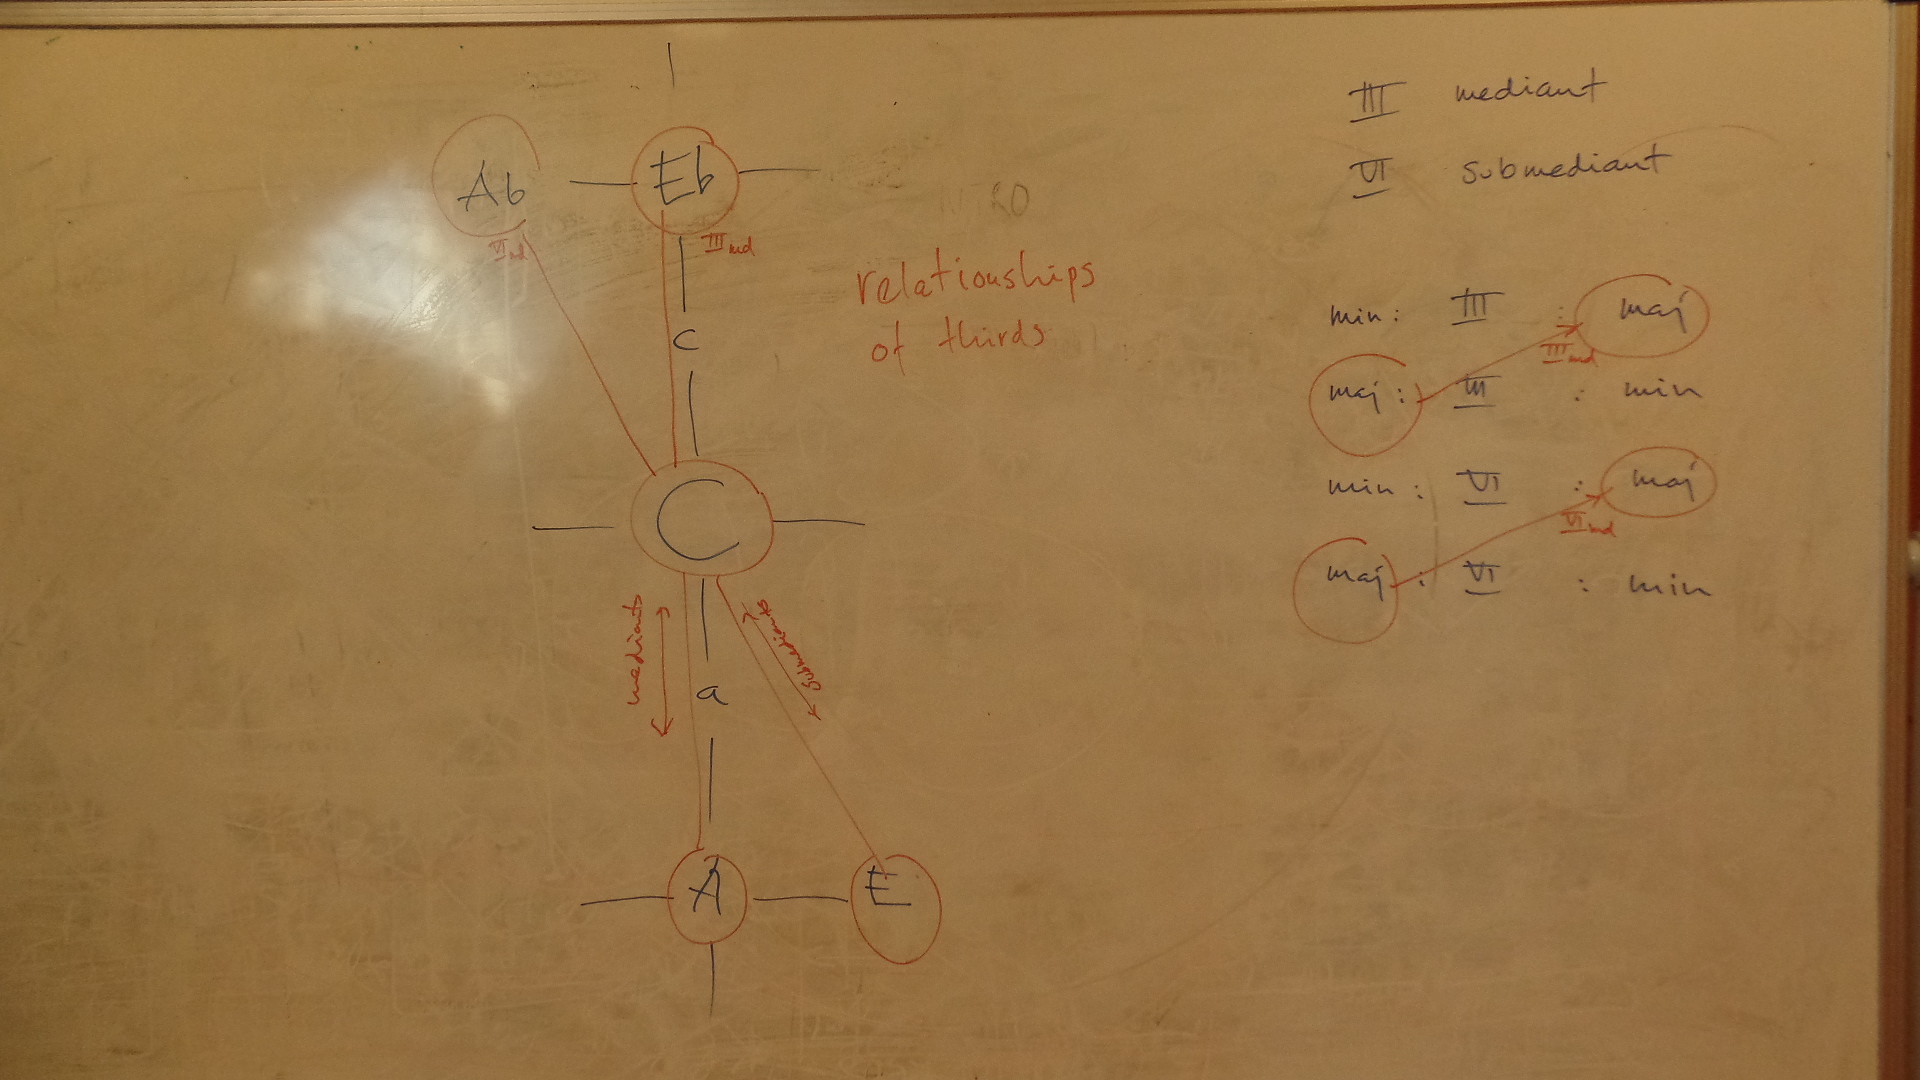 Ab Eb
VI md III md
c
relationships
of thirds
C
mediants
submediants
a
A E
III mediant
VI submediant
min: III : maj
III md
maj: III : min
min: VI : maj
VI md
maj: VI : min